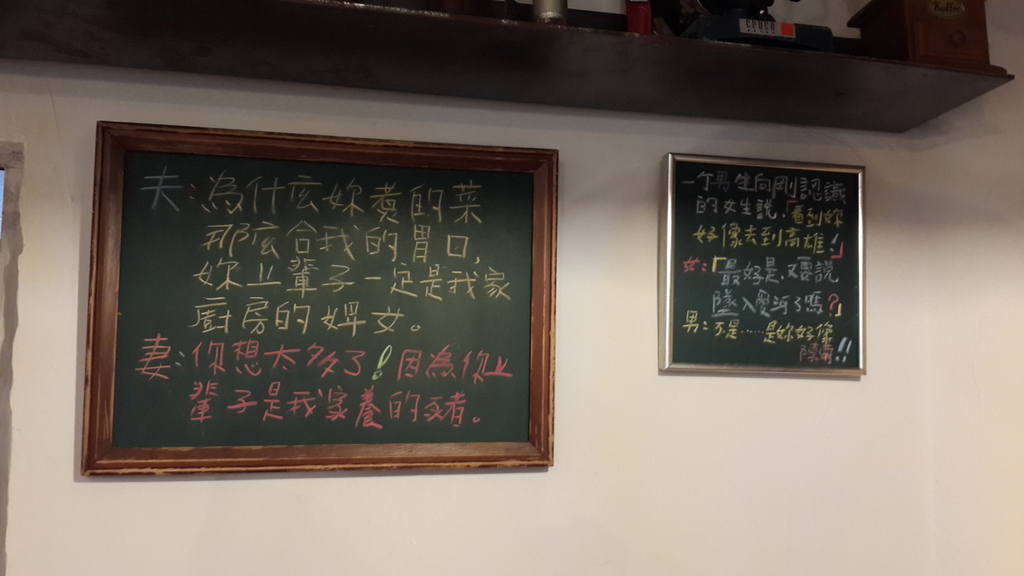 夫:為什麼妳煮的菜
那麼合我的胃口,
妳上輩子一定是我家
廚房的婢女。
妻:你想太多了!因為你上
輩子是我家養的豬。
一个男生向剛認識
的女生說,「看到妳
好像去到高雄!」
女:「最好是,要說
墜入愛河了嗎?」
男:不是……是妳好像
!!
Kaffee